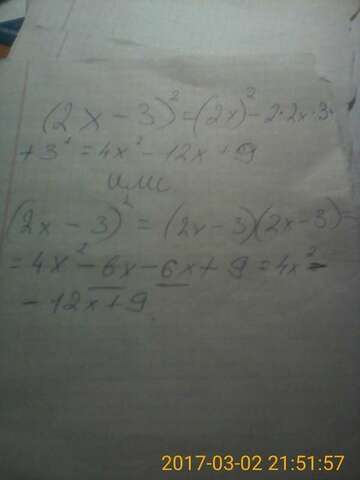 (2x - 3)² = (2x)² - 2·2x·3
+ 3² = 4x² - 12x + 9
или
(2x - 3)² = (2x - 3)(2x - 3) =
= 4x² - 6x - 6x + 9 = 4x² -
- 12x + 9
2017-03-02 21:51:57